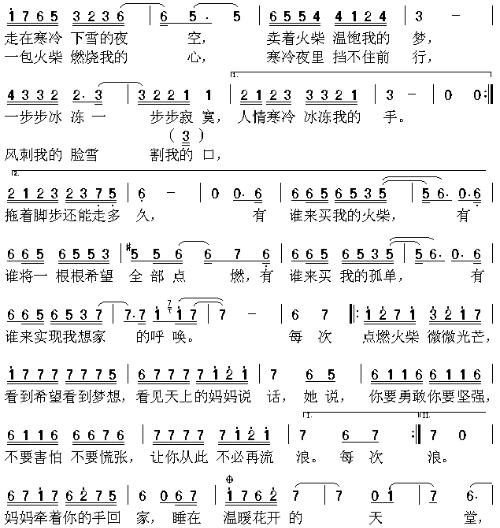 i 7 6 5 3 2 3 6 | 6 5 . 5 | 6 5 5 4 4 1 2 4 | 3 －
走在寒冷 下雪的夜 空， 卖着火柴 温饱我的 梦，
一包火柴 燃烧我的 心， 寒冷夜里 挡不住前 行，
1.
4 3 3 2 2 . 3 | 3 2 2 1 1 | 2 1 2 3 3 2 1 2 | 3 － | 0 0 :|
一步步冰 冻一 步步寂 寞， 人情寒冷 冰冻我的 手。
( 3 )
风刺我的 脸雪 割我的 口，
2.
2 1 2 3 2 3 7 5 | 6 － | 0 0 . 6 | 6 6 5 6 5 3 5 | 5 6 . 0 . 6
拖着脚步还能走多 久， 有 谁来买我的火柴， 有
6 6 5 6 5 5 3 | #5 5 6 6 | 6 7 6 | 6 6 5 6 5 3 5 | 5 6 . 0 . 6
谁将一 根根希望 全部点 燃，有 谁来买 我的孤单， 有
6 6 5 6 5 3 7 | 7 . 7 1 7 i 7 | 7 － | 6 7 |: i 2 7 1 3 2 1 7
谁来实现我想家 的呼 唤。 每 次 点燃火柴 微微光芒，
i 7 7 7 7 7 7 7 | 7 7 7 7 7 i 2 i | 7 6 5 | 6 1 1 6 6 1 1 6
看到希望看到梦想， 看见天上的妈妈说 话， 她 说， 你要勇敢你要坚强，
1. 2.
6 1 1 6 6 6 7 6 | 7 7 7 7 7 i 2 i | 7 6 7 :| 7 0
不要害怕 不要慌张， 让你从此 不必再流 浪。 每 次 浪。
6 7 1 7 6 2 2 7 | 6 0 6 7 | i 7 6 2 7 | 7 7 | 7 6
妈妈牵着你的手回 家，睡在 温暖花开 的 天 堂，